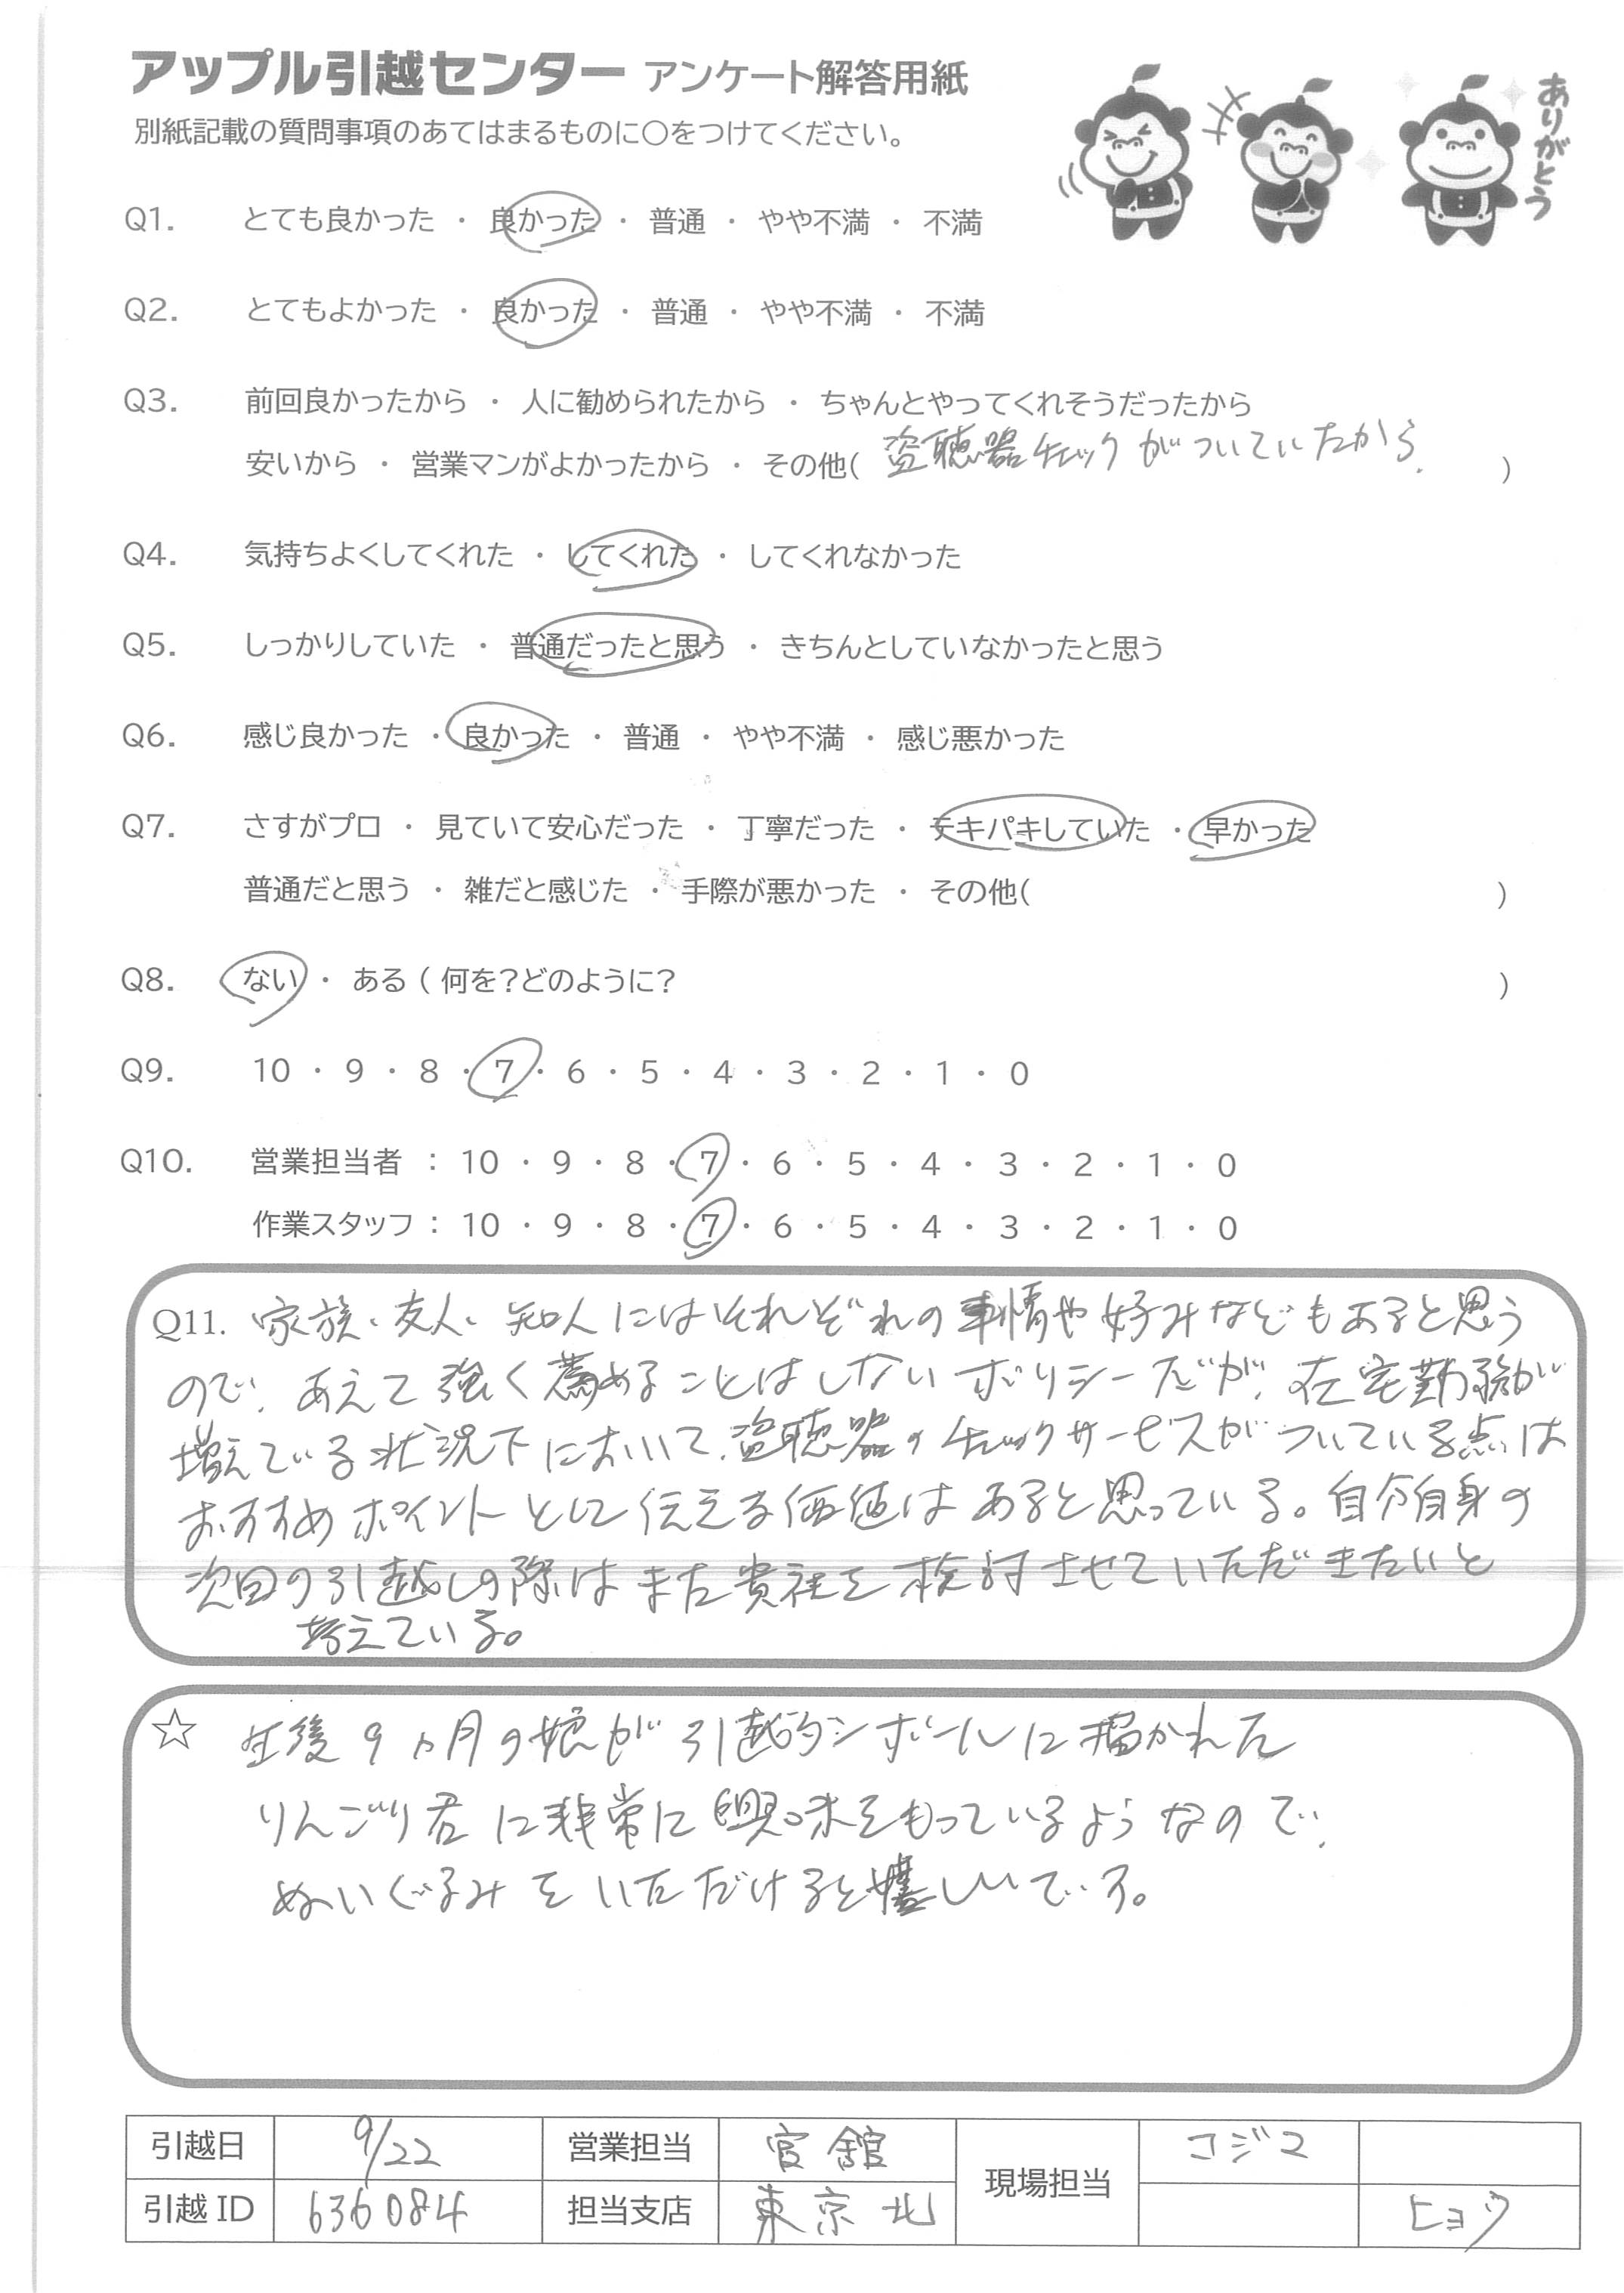 アップル引越センター アンケート解答用紙
別紙記載の質問事項のあてはまるものに○をつけてください。
ありがとう
Q1. とても良かった ・ 良かった ・ 普通 ・ やや不満 ・ 不満
Q2. とてもよかった ・ 良かった ・ 普通 ・ やや不満 ・ 不満
Q3. 前回良かったから ・ 人に勧められたから ・ ちゃんとやってくれそうだったから
安いから ・ 営業マンがよかったから ・ その他( 盗聴器チェックがついていたから. )
Q4. 気持ちよくしてくれた ・ してくれた ・ してくれなかった
Q5. しっかりしていた ・ 普通だったと思う ・ きちんとしていなかったと思う
Q6. 感じ良かった ・ 良かった ・ 普通 ・ やや不満 ・ 感じ悪かった
Q7. さすがプロ ・ 見ていて安心だった ・ 丁寧だった ・ テキパキしていた ・ 早かった
普通だと思う ・ 雑だと感じた ・ 手際が悪かった ・ その他( )
Q8. ない ・ ある ( 何を?どのように? )
Q9. 10 ・ 9 ・ 8 ・ 7 ・ 6 ・ 5 ・ 4 ・ 3 ・ 2 ・ 1 ・ 0
Q10. 営業担当者 : 10 ・ 9 ・ 8 ・ 7 ・ 6 ・ 5 ・ 4 ・ 3 ・ 2 ・ 1 ・ 0
作業スタッフ : 10 ・ 9 ・ 8 ・ 7 ・ 6 ・ 5 ・ 4 ・ 3 ・ 2 ・ 1 ・ 0
Q11. 家族、友人、知人にはそれぞれの事情や好みなどもあると思う
ので、あえて強く薦めることはしないポリシーだが、在宅勤務が
増えている状況下において、盗聴器のチェックサービスがついている点は
おすすめポイントとして伝える価値はあると思っている。自分自身の
次回の引越しの際はまた貴社を検討させていただきたいと
考えている。
☆ 生後9ヵ月の娘が引越ダンボールに描かれた
りんごり君に非常に興味をもっているようなので、
ぬいぐるみをいただけると嬉しいです。
引越日 9/22 営業担当 官舘 現場担当 コジマ
引越ID 636084 担当支店 東京北 ヒョウ